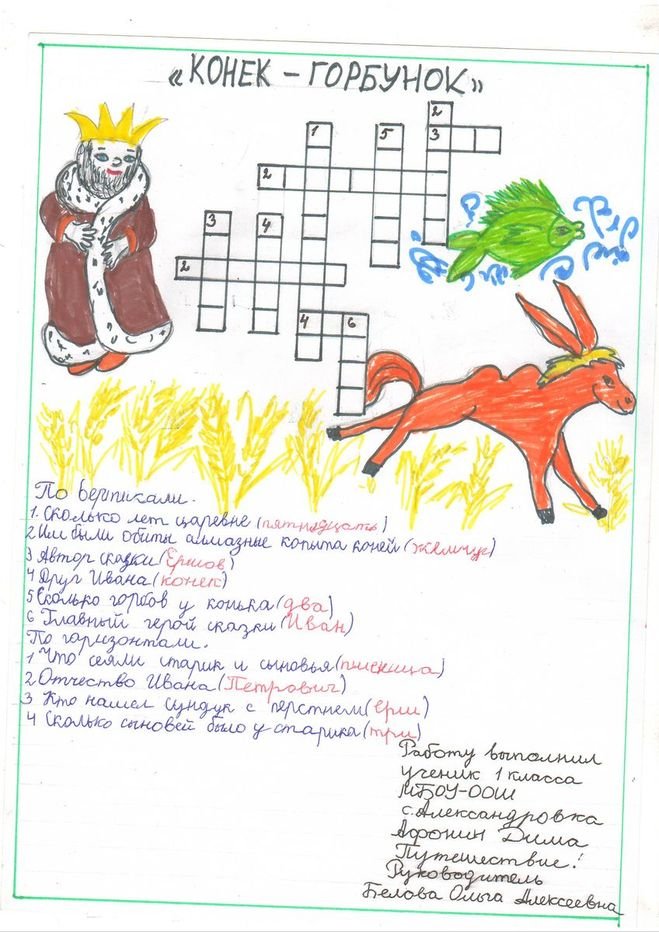 «КОНЕК – ГОРБУНОК»
2
1 5 3
2
3 4
2
4 6
По вертикали.
1. Сколько лет царевне (пятнадцать)
2 Им были обиты алмазные копыта коней (жемчуг)
3 Автор сказки (Ершов)
4 Друг Ивана (конек)
5 Сколько горбов у конька (два)
6 Главный герой сказки (Иван)
По горизонтали.
1 Что сеяли старик и сыновья (пшеница)
2 Отчество Ивана (Петрович)
3 Кто нашел сундук с перстнем (ерш)
4 Сколько сыновей было у старика (три)
Работу выполнил
ученик 1 класса
МБОУ-ООШ
с. Александровка
Афонин Дима
Путешествие!
Руководитель
Белова Ольга Алексеевна